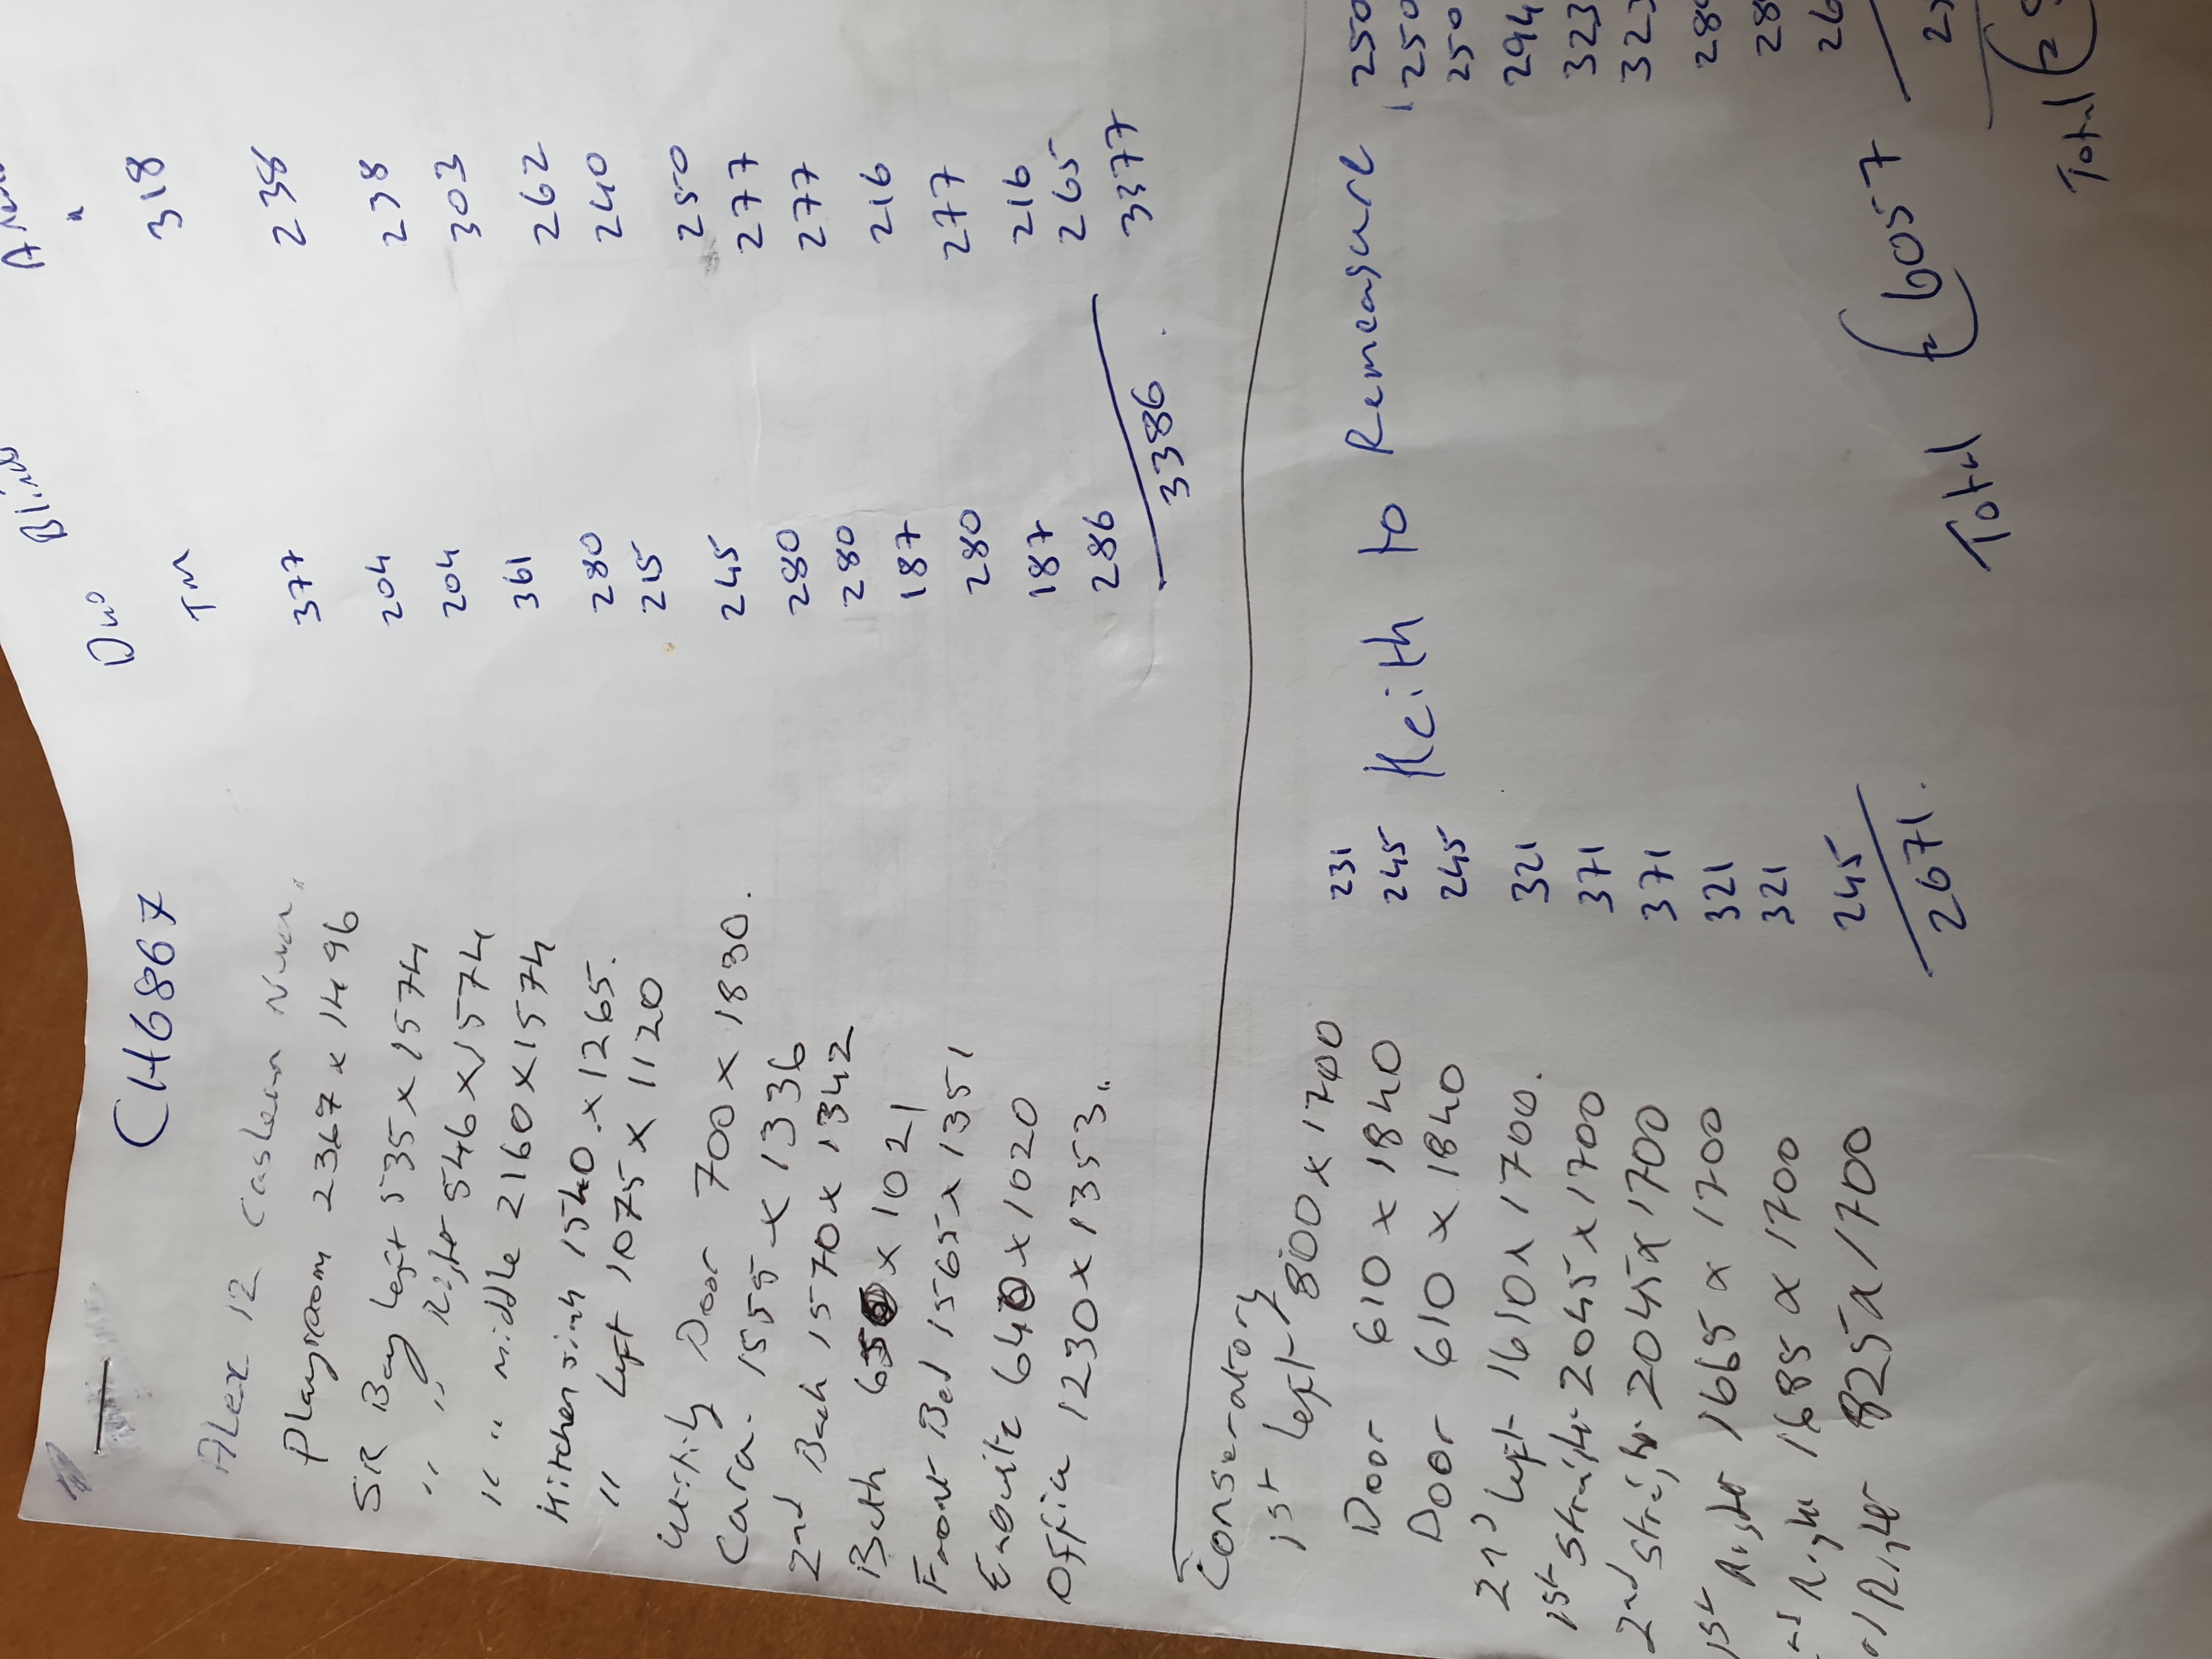 CH6867
Duo Blind
Alex 12
TM 318
Playroom 2367 x 1496 377 238
Sit Bay left 535 x 1574 204 238
" " Right 546 x 1574 204 303
" " middle 2160 x 1574 361 262
Kitchen sink 1540 x 1265. 280 240
" left 1075 x 1120 215
Utility Door 700 x 1830. 245 250
Cara. 1555 x 1336 280 277
2nd Back 1570 x 1342 280 277
Bath 650 x 1021 187 216
Front Bed 1565 x 1351 280 277
Ensuite 640 x 1020 187 216
Office 1230 x 1353. 286 265
3386 3377
Conservatory
1st left 800 x 1700 231 250
Door 610 x 1840 245 Keith to Remeasure 250
Door 610 x 1840 245 250
2nd left 1610 x 1700. 321 294
1st straight 2045 x 1700 371 323
2nd straight 2045 x 1700 371 323
1st Right 1665 x 1700 321
Right 1685 x 1700 321
Right 825 x 1700 245
2671.
Total (6057
Total